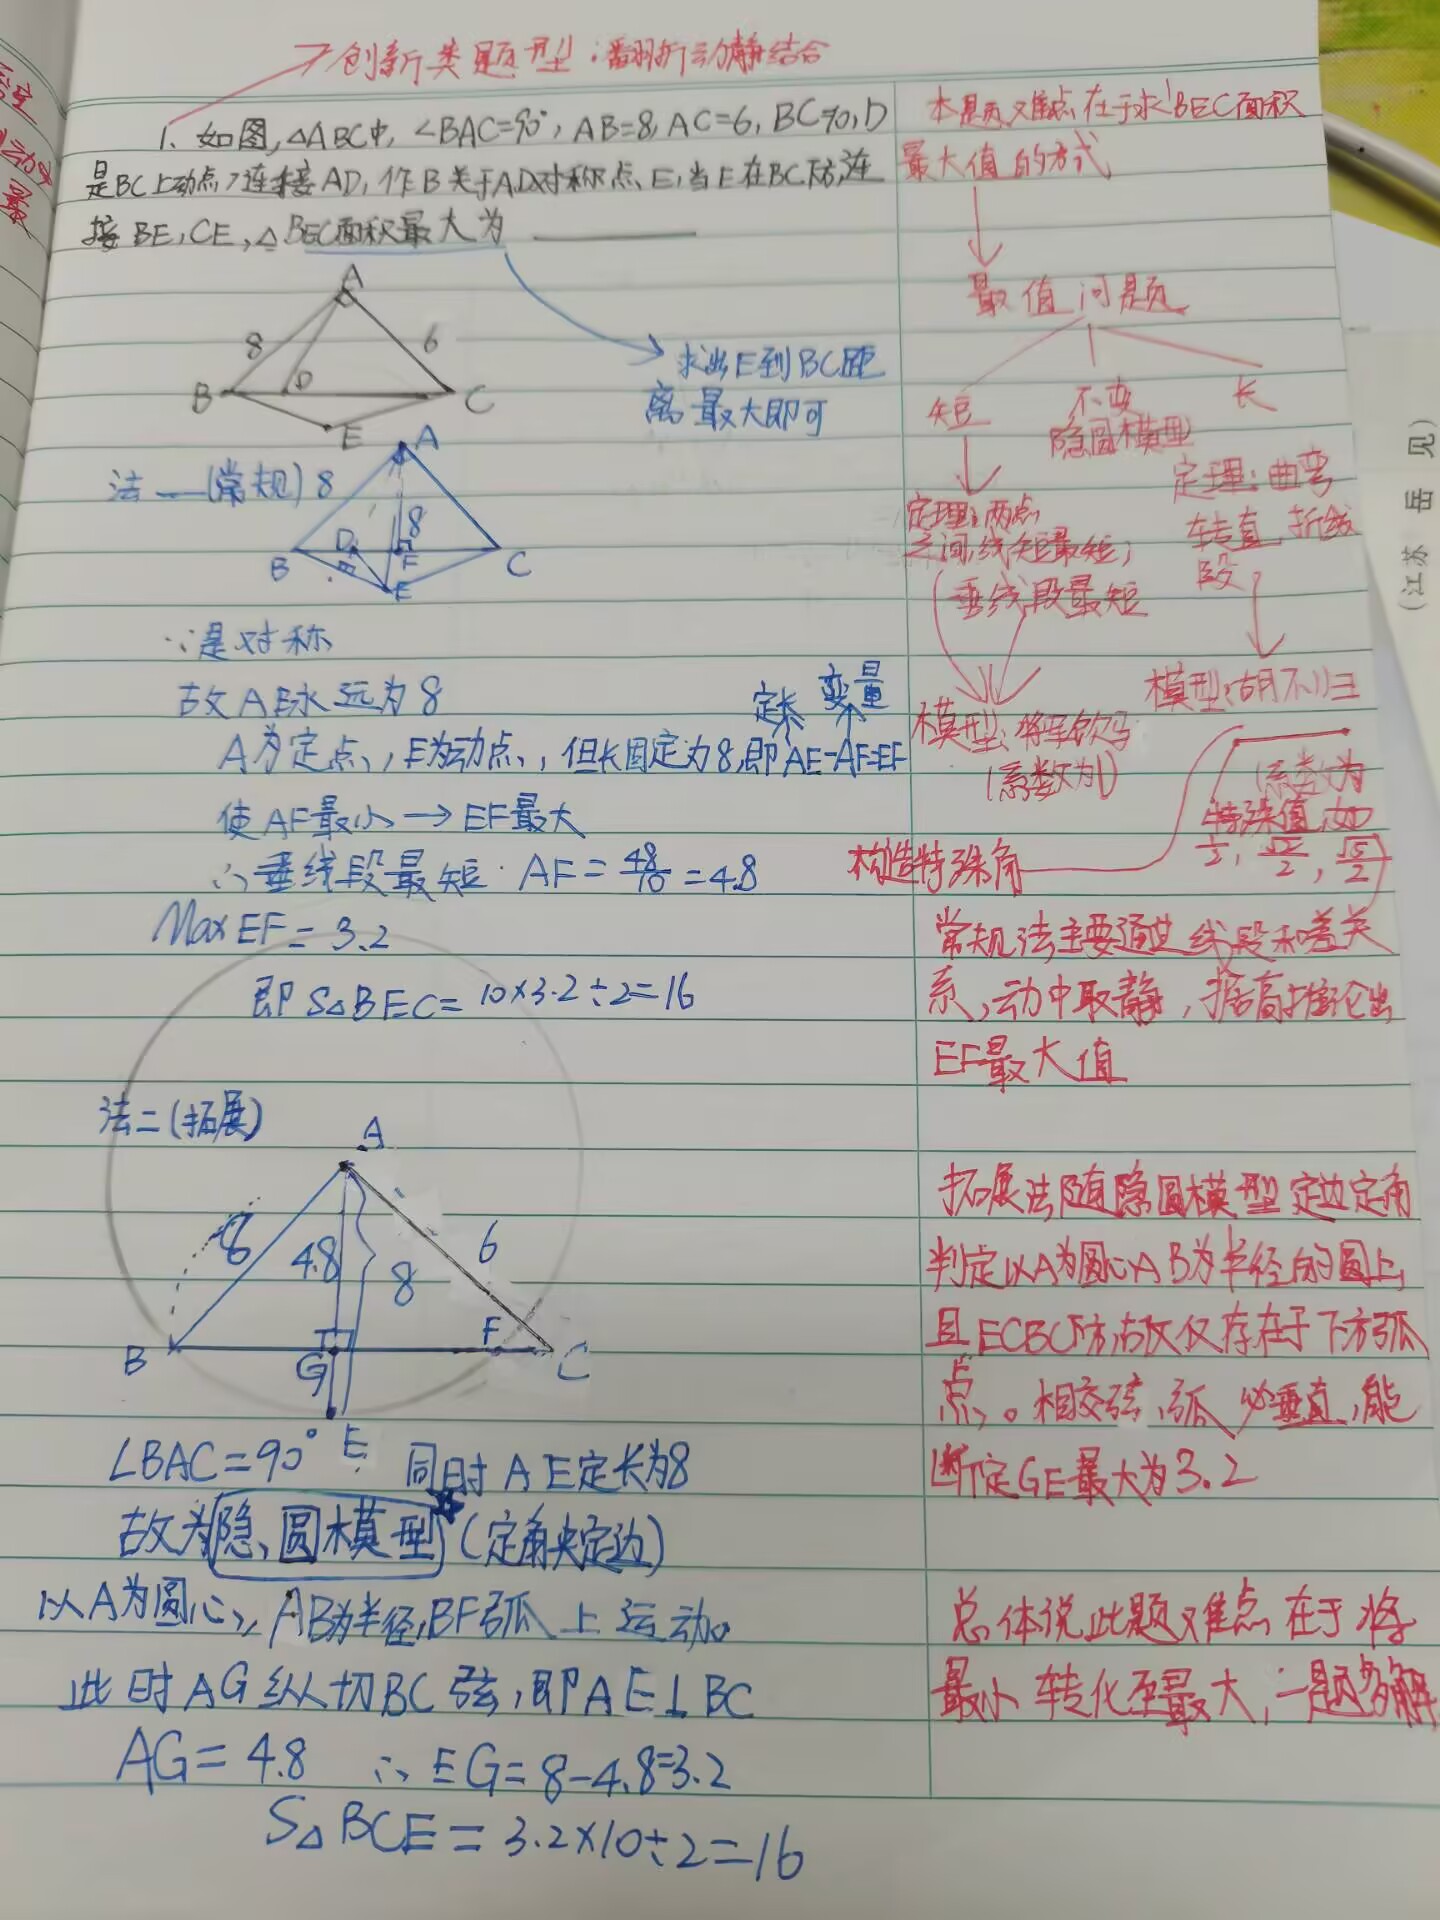 创新类题型：翻折动静结合
1. 如图，△ABC中，∠BAC=90°，AB=8，AC=6，BC=10，D
是BC上动点，连接AD，作B关于AD对称点E，当E在BC下方，连
接BE，CE，△BEC面积最大为
A
8
6
B
D
C
E
求出E到BC距
离最大即可
法一（常规）
8
A
8
D
F
B
C
E
∵是对称
故AE永远为8
定长 变量
A为定点，E为动点，但长固定为8，即AE-AF=EF
使AF最小→EF最大
∴垂线段最短. AF=48/10=4.8
Max EF=3.2
即S△BEC=10×3.2÷2=16
法二（拓展）
A
8
4.8
8
6
B
G
F
C
E
∠BAC=90°
同时AE定长为8
故为隐圆模型（定角夹定边）
以A为圆心，AB为半径，BF弧上运动。
此时AG纵切BC弦，即AE⊥BC
AG=4.8 ∴EG=8-4.8=3.2
S△BCE=3.2×10÷2=16
本题难点在于求△BEC面积
最大值的方式
最值问题
短
不变
长
隐圆模型
定理：两点
之间，线短最短；
垂线段最短
定理：曲弯
转直，折线
段
模型：将军饮马
（系数为1）
模型：胡不归
（系数为
特殊值，如
构造特殊角
常规法主要通过线段和差关
系，动中取静，搭高推论出
EF最大值
拓展法随隐圆模型定边定角
判定以A为圆心AB为半径的圆上
且E⊂BC下方，故仅存在于下方弧
点。相交弦，弧必垂直，能
断定GE最大为3.2
总体说此题难点在于将
最小转化至最大，一题多解
（江苏 岳 见）